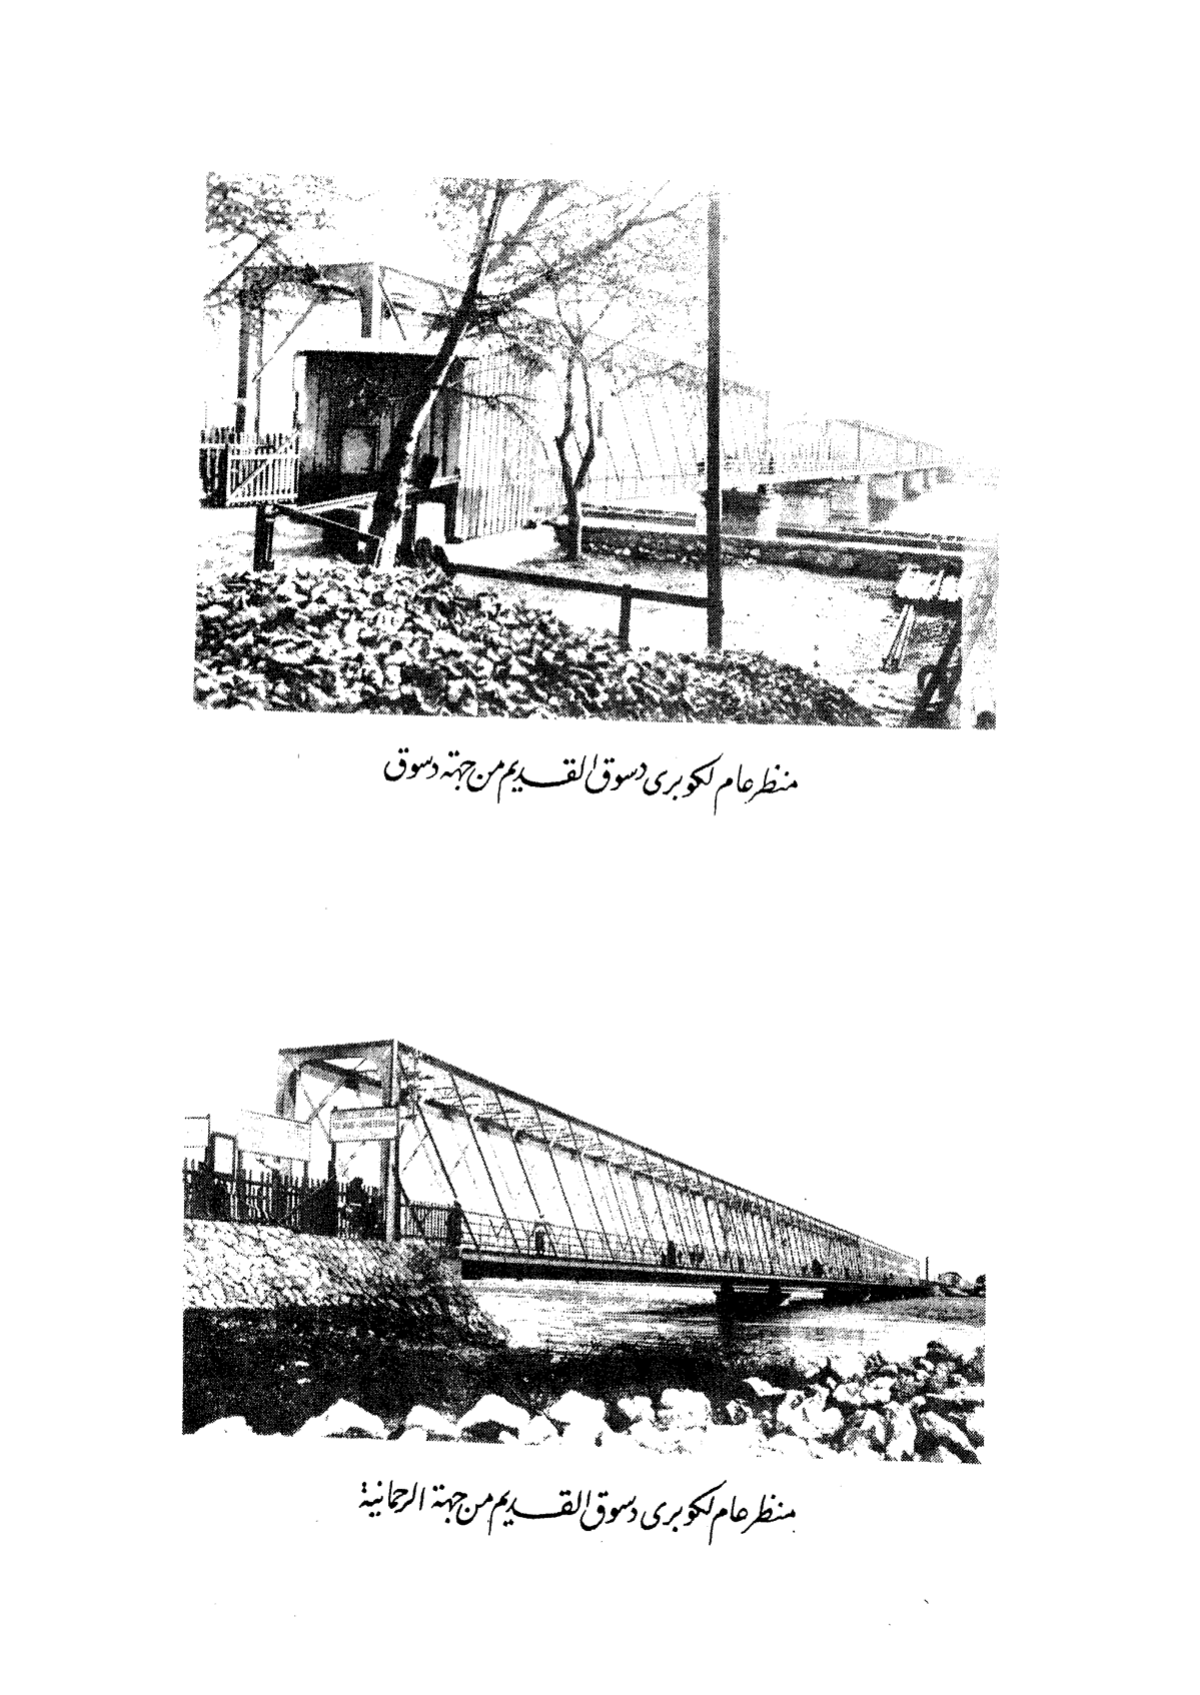 منظر عام لكوبرى دسوق القديم من جهة دسوق
منظر عام لكوبرى دسوق القديم من جهة الرحمانية